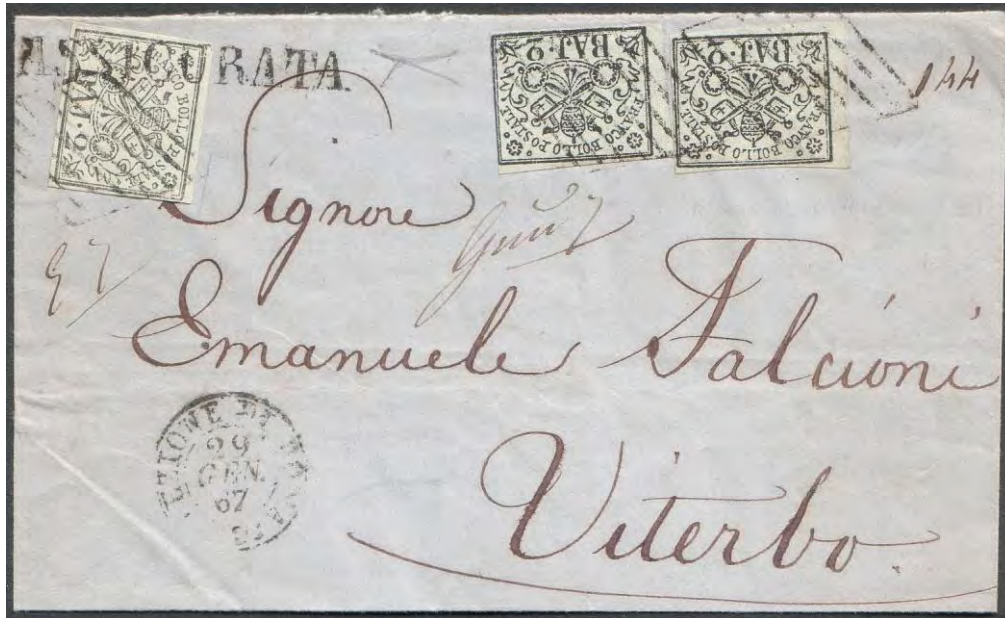 ASSICURATA
BAJ. 2
FRANCO BOLLO POSTALE
BAJ. 2
FRANCO BOLLO POSTALE
BAJ. 2
FRANCO BOLLO POSTALE
144
Signore
97
Emanuele Falcioni
Viterbo
DI
29
GEN.
67